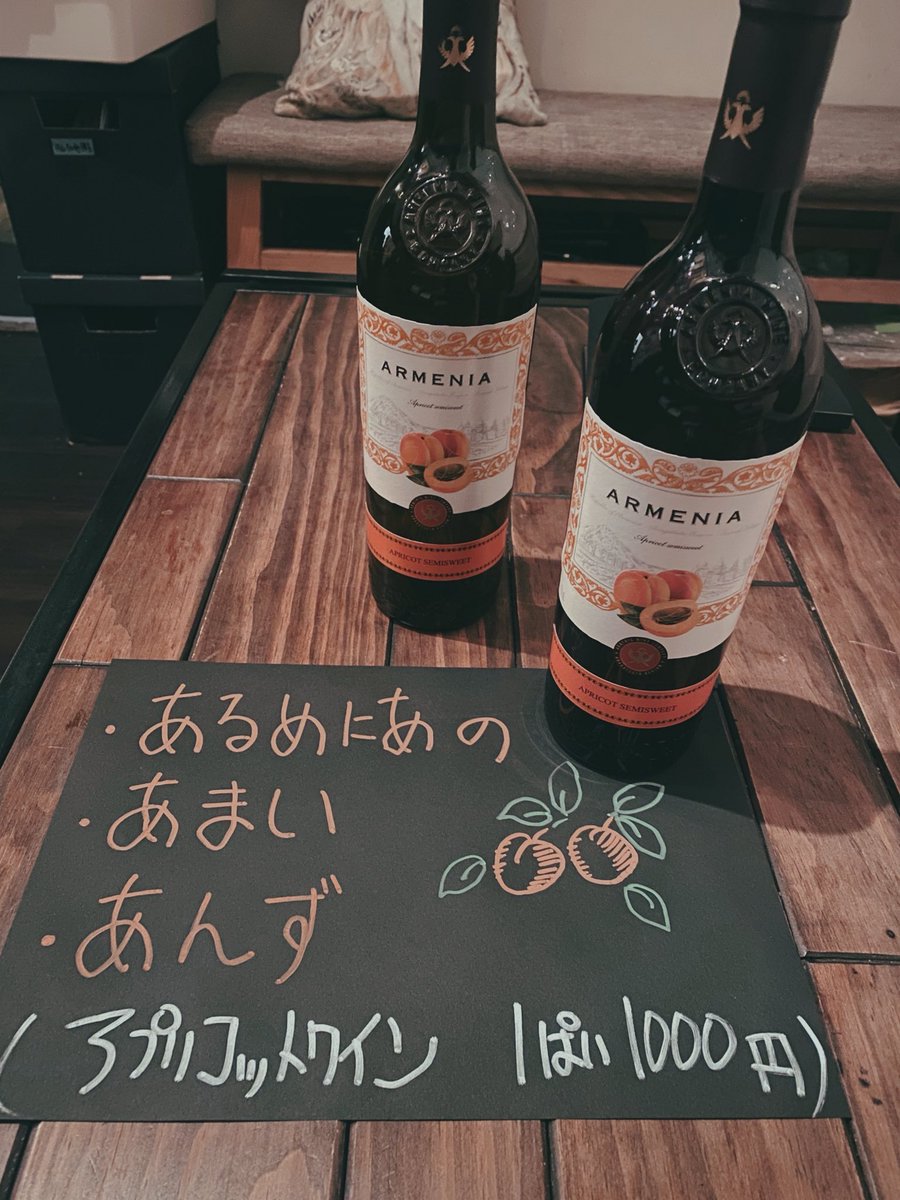 ARMENIA
Apricot semisweet
APRICOT SEMISWEET
ARMENIA
Apricot semisweet
APRICOT SEMISWEET
・あるめにあの
・あまい
・あんず
(アプリコットワイン 1ぱい1000円)